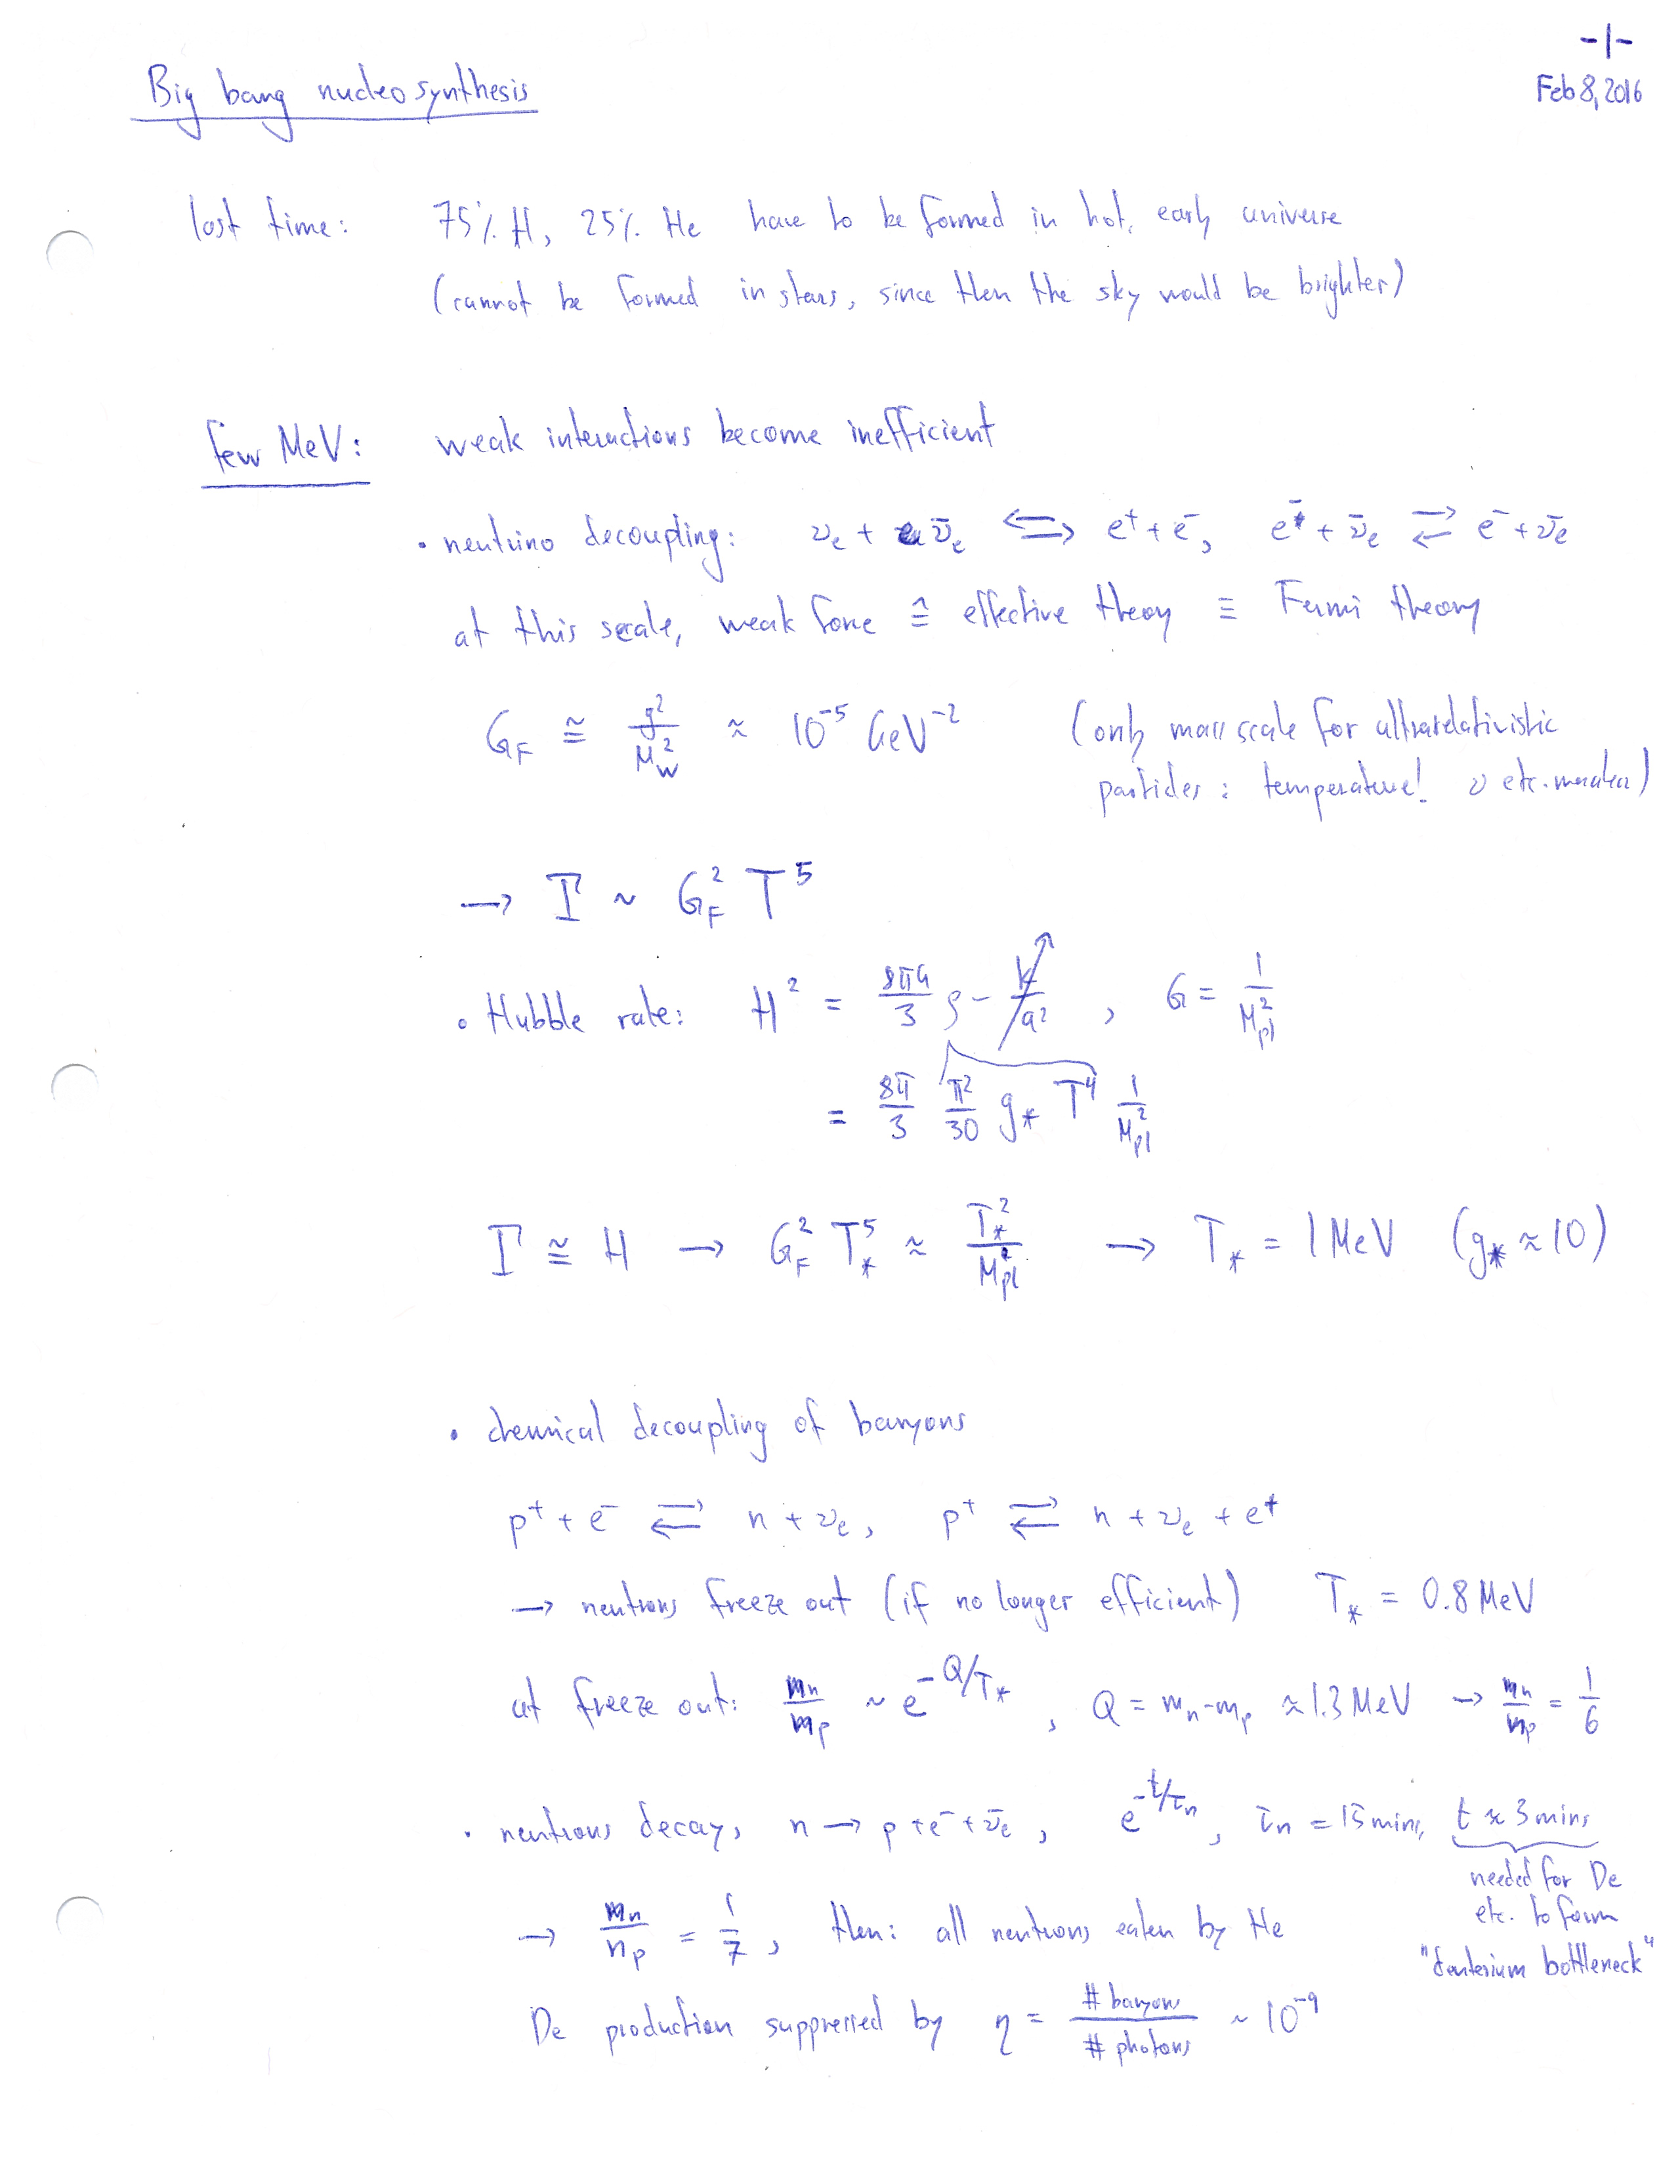 -1-
Feb 8, 2016
Big bang nucleosynthesis
last time: 75% H, 25% He have to be formed in hot, early universe
(cannot be formed in stars, since then the sky would be brighter)
few MeV: weak interactions become inefficient
• neutrino decoupling: νe + ν̄e ⟺ e⁺ + e⁻, e⁻ + ν̄e ⇄ e⁻ + ν̄e
at this scale, weak force ≙ effective theory ≡ Fermi theory
G_F ≅ g²/M_W² ≈ 10⁻⁵ GeV⁻² (only mass scale for ultrarelativistic
particles: temperature! ν etc. massless)
→ Γ ~ G_F² T⁵
• Hubble rate: H² = 8πG/3 ρ - k/a², G = 1/M_pl²
= 8π/3 π²/30 g* T⁴ 1/M_pl²
Γ ≅ H → G_F² T*⁵ ≈ T*²/M_pl → T* = 1 MeV (g* ≈ 10)
• chemical decoupling of baryons
p⁺ + e⁻ ⇄ n + νe, p⁺ ⇄ n + νe + e⁺
→ neutrons freeze out (if no longer efficient) T* = 0.8 MeV
at freeze out: n_n/n_p ~ e^(-Q/T*), Q = m_n - m_p ≈ 1.3 MeV → n_n/n_p = 1/6
• neutrons decay, n → p + e⁻ + ν̄e, e^(-t/τn), τn = 15 mins, t ≈ 3 mins
needed for De
etc. to form
"deuterium bottleneck"
→ n_n/n_p = 1/7, then: all neutrons eaten by He
De production suppressed by η = # baryons/# photons ~ 10⁻⁹